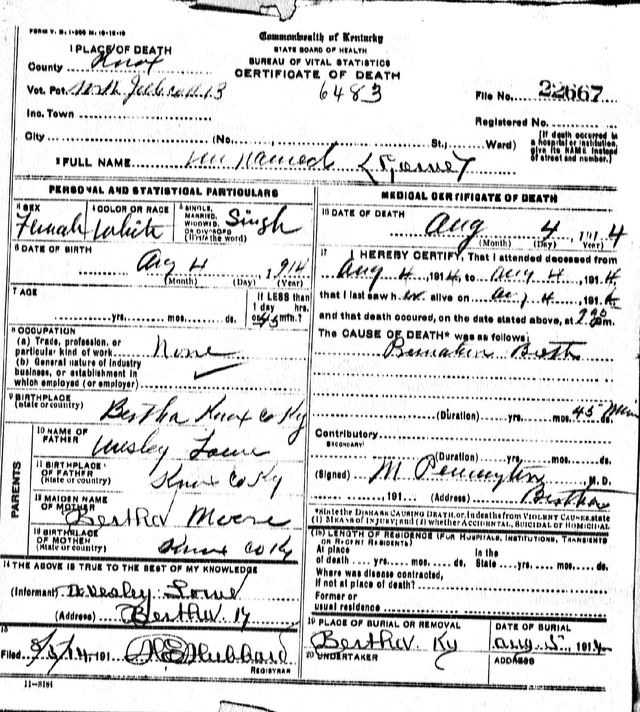 FORM V. S. 1-
Commonwealth of Kentucky
STATE BOARD OF HEALTH
BUREAU OF VITAL STATISTICS
CERTIFICATE OF DEATH
6483
1 PLACE OF DEATH
County Knox
Vot. Pct. North 13
Inc. Town
City (No. St.; Ward)
File No. 22667
Registered No.
[If death occurred in
a hospital or institution,
give its NAME instead
of street and number.]
2 FULL NAME
PERSONAL AND STATISTICAL PARTICULARS
3 SEX Female
4 COLOR OR RACE White
5 SINGLE, MARRIED, WIDOWED, OR DIVORCED (Write the word) Single
6 DATE OF BIRTH
Aug 4, 1914
(Month) (Day) (Year)
7 AGE
yrs. mos. ds.
If LESS than
1 day hrs.
or 45 min.?
8 OCCUPATION
(a) Trade, profession, or
particular kind of work None
(b) General nature of Industry
business, or establishment in
which employed (or employer)
9 BIRTHPLACE
(State or country) Bertha Knox co Ky
PARENTS
10 NAME OF
FATHER Wesley Lowe
11 BIRTHPLACE
OF FATHER
(State or country) Knox Co Ky
12 MAIDEN NAME
OF MOTHER Bertha Moore
13 BIRTHPLACE
OF MOTHER
(State or country) Knox co Ky
14 THE ABOVE IS TRUE TO THE BEST OF MY KNOWLEDGE
(Informant) Wesley Lowe
(Address) Bertha Ky
15
Filed 14, 191 Hubbard
REGISTRAR
11-3184
MEDICAL CERTIFICATE OF DEATH
16 DATE OF DEATH
Aug 4, 1914
(Month) (Day) (Year)
17 I HEREBY CERTIFY, That I attended deceased from
Aug 4, 1914, to Aug 4, 1914
that I last saw h alive on Aug 4, 1914
and that death occured, on the date stated above, at m.
The CAUSE OF DEATH* was as follows:
Birth
(Duration) yrs. mos. 45 Min ds.
Contributory
SECONDARY
(Duration) yrs. mos. ds.
(Signed) M Pennington M. D.
191 (Address) Bertha
*State the DISEASE CAUSING DEATH, or, in deaths from VIOLENT CAUSES, state
(1) MEANS OF INJURY; and (2) whether ACCIDENTAL, SUICIDAL or HOMICIDAL
(18) LENGTH OF RESIDENCE (FOR HOSPITALS, INSTITUTIONS, TRANSIENTS
OR RECENT RESIDENTS)
At place In the
of death yrs. mos. ds. State yrs. mos. ds.
Where was disease contracted,
if not at place of death?
Former or
usual residence
19 PLACE OF BURIAL OR REMOVAL
Bertha Ky
DATE OF BURIAL
Aug 5, 1914
20 UNDERTAKER
ADDRESS